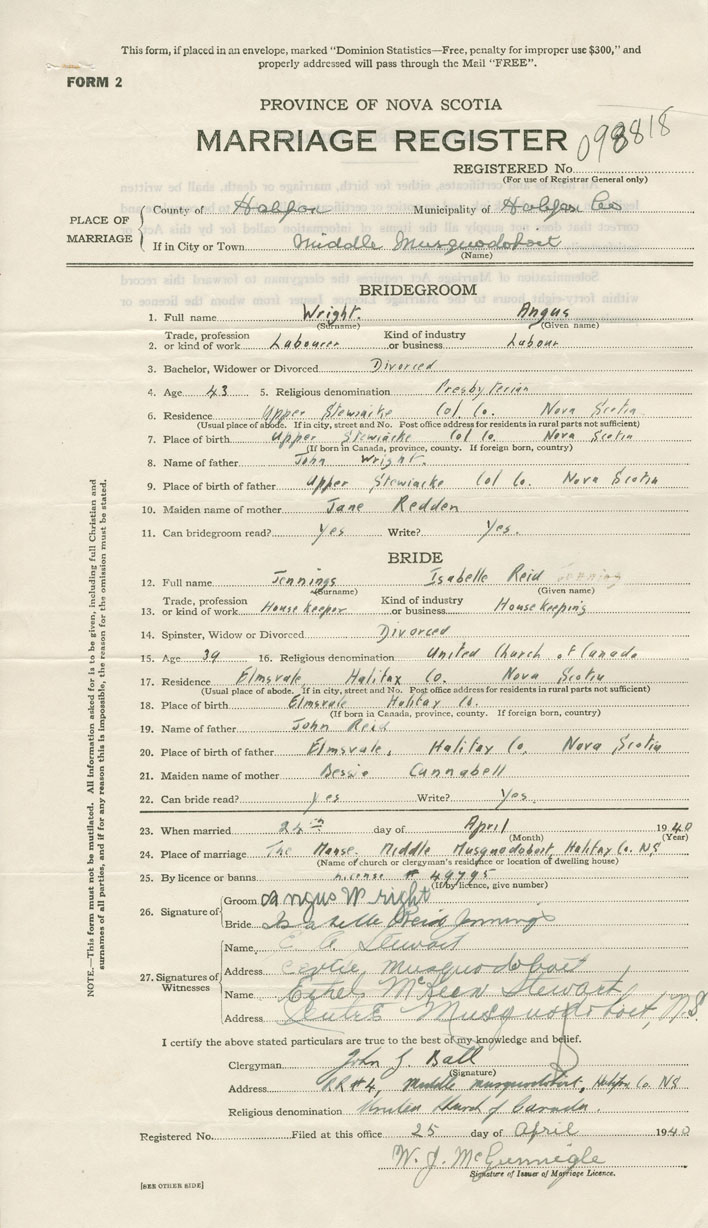 This form, if placed in an envelope, marked "Dominion Statistics—Free, penalty for improper use $300," and
properly addressed will pass through the Mail "FREE".
FORM 2
PROVINCE OF NOVA SCOTIA
MARRIAGE REGISTER
098818
REGISTERED No.
(For use of Registrar General only)
PLACE OF MARRIAGE
County of Halifax Municipality of Halifax Co
If in City or Town Middle Musquodoboit
(Name)
BRIDEGROOM
1. Full name Wright. Angus
(Surname) (Given name)
2. Trade, profession or kind of work Labourer Kind of industry or business Labour
3. Bachelor, Widower or Divorced Divorced
4. Age 43 5. Religious denomination Presbyterian
6. Residence Upper Stewiacke Col. Co. Nova Scotia
(Usual place of abode. If in city, street and No. Post office address for residents in rural parts not sufficient)
7. Place of birth Upper Stewiacke Col Co. Nova Scotia
(If born in Canada, province, county. If foreign born, country)
8. Name of father John Wright.
9. Place of birth of father Upper Stewiacke Col Co. Nova Scotia
10. Maiden name of mother Jane Redden
11. Can bridegroom read? Yes Write? Yes.
BRIDE
12. Full name Jennings Isabelle Reid
(Surname) (Given name)
13. Trade, profession or kind of work Housekeeper Kind of industry or business Housekeeping
14. Spinster, Widow or Divorced Divorced
15. Age 39 16. Religious denomination United Church of Canada
17. Residence Elmsvale, Halifax Co. Nova Scotia
(Usual place of abode. If in city, street and No. Post office address for residents in rural parts not sufficient)
18. Place of birth Elmsvale Halifax Co.
(If born in Canada, province, county. If foreign born, country)
19. Name of father John Reid
20. Place of birth of father Elmsvale, Halifax Co, Nova Scotia
21. Maiden name of mother Bessie Cunnabell
22. Can bride read? Yes Write? Yes.
23. When married 24th day of April 1940
(Month) (Year)
24. Place of marriage The Manse, Middle Musquodoboit, Halifax Co. NS
(Name of church or clergyman's residence or location of dwelling house)
25. By licence or banns License # 49795
(If by licence, give number)
26. Signature of
Groom Angus Wright
Bride Isabelle Reid Jennings
27. Signatures of Witnesses
Name Stewart
Address Centre Musquodoboit
Name Ethel McKeen Stewart,
Address Centre Musquodoboit, N.S.
I certify the above stated particulars are true to the best of my knowledge and belief.
Clergyman John J. Ball
(Signature)
Address RR#4, Middle Musquodoboit, Halifax Co. NS
Religious denomination United Church of Canada.
Registered No. Filed at this office 25 day of April 1940
W. J. McGunnigle
Signature of Issuer of Marriage Licence.
[SEE OTHER SIDE]
NOTE.—This form must not be mutilated. All information asked for is to be given, including full Christian and
surnames of all parties, and if for any reason this is impossible, the reason for the omission must be stated.